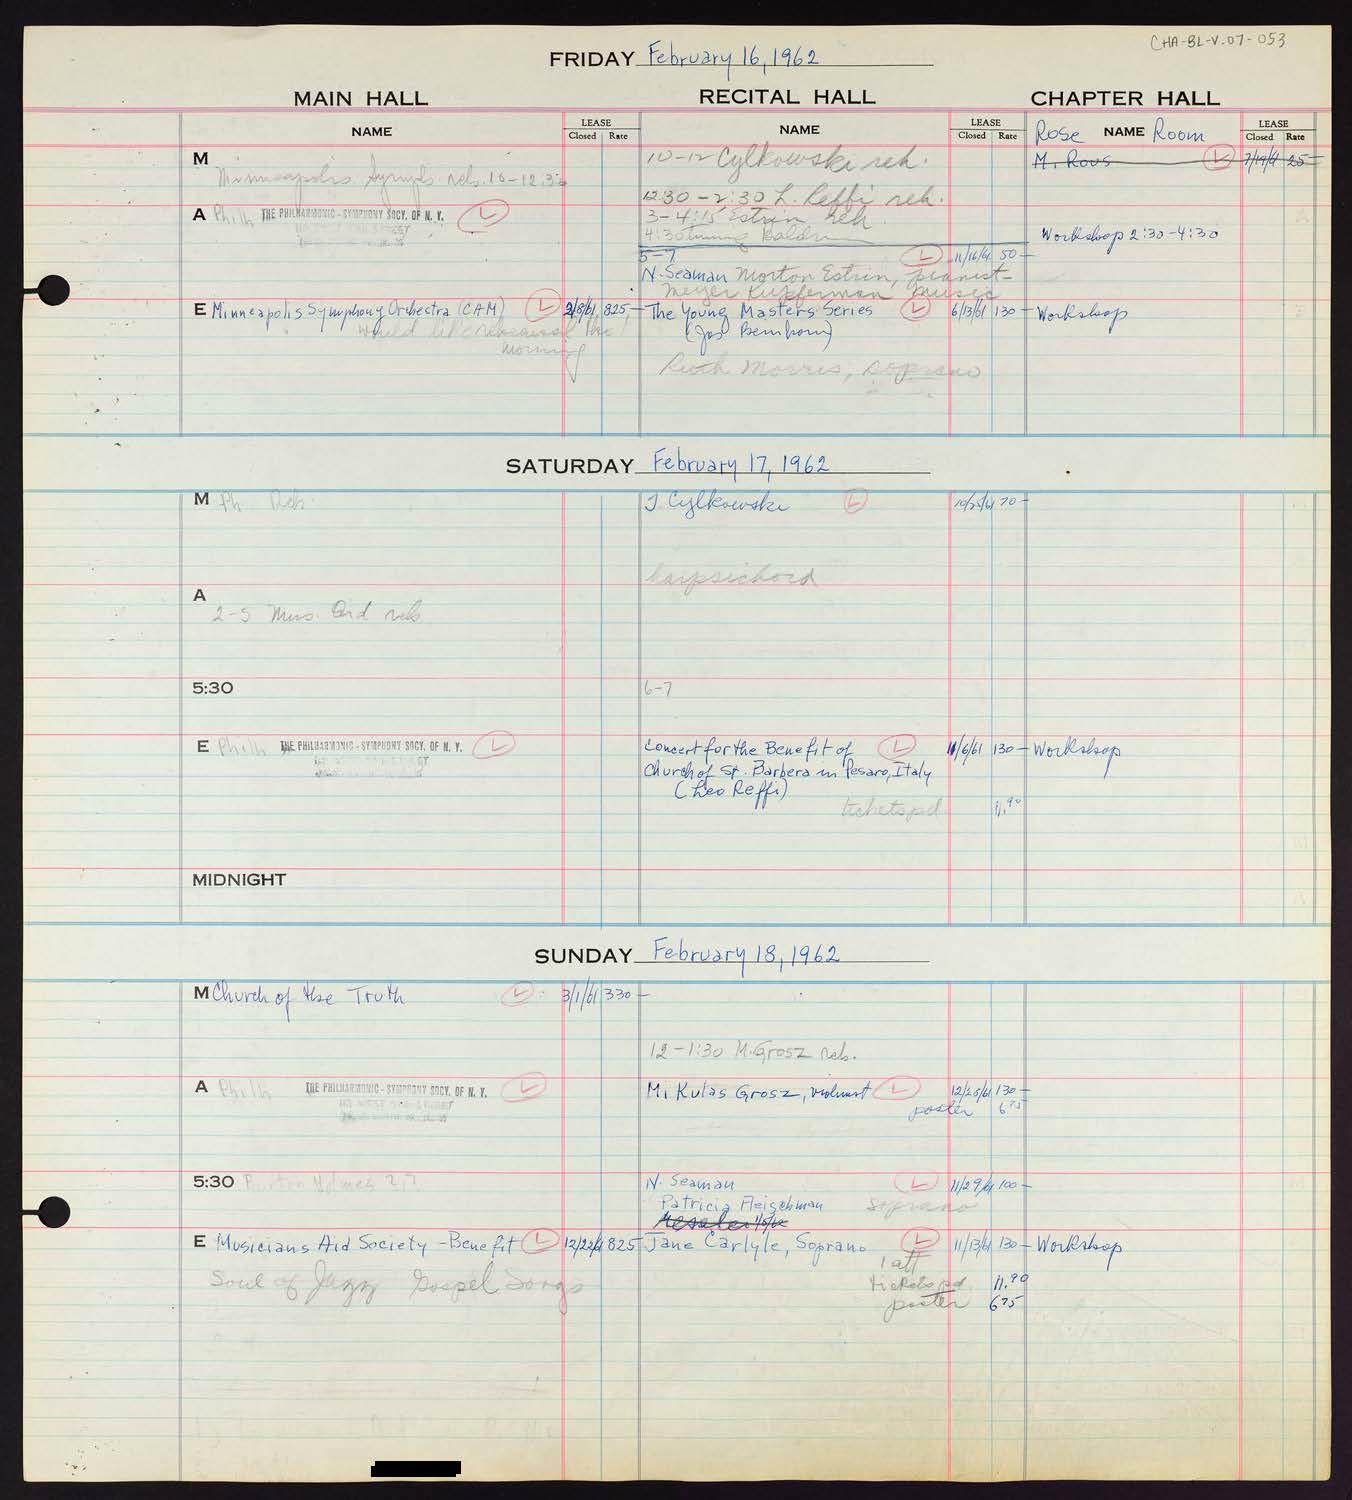 CHA-BL-V.07-053
FRIDAY February 16, 1962
MAIN HALL RECITAL HALL CHAPTER HALL
NAME LEASE Closed Rate NAME LEASE Closed Rate Rose NAME Room LEASE Closed Rate
M Minneapolis Symph. reh. 10-12:30
10-12 Cylkowski reh.
M. Rous L 7/19/61 25-
12:30-2:30 L. Reffi reh.
A Philh THE PHILHARMONIC-SYMPHONY SOCY. OF N. Y. L
3-4:15 Estrin reh
4:30 tuning Baldwin
Workshop 2:30-4:30
5-7 L 11/16/61 50-
N. Seaman Morton Estrin, pianist-
Meyer Kupferman music
E Minneapolis Symphony Orchestra (CAM) L 2/8/61 825-
would like rehearsal the
morning
The Young Masters Series L 6/13/61 130-
(Jos Bernhorn)
Ruth Morris, soprano
Workshop
SATURDAY February 17, 1962
M Ph Reh.
J Cylkowski L 10/25/61 70-
harpsichord
A
2-5 Mus. Aid reh
5:30
6-7
E Philh THE PHILHARMONIC-SYMPHONY SOCY. OF N. Y. L
Concert for the Benefit of L 11/6/61 130-
Church of St. Barbera in Pesaro, Italy
(Leo Reffi)
tickets pd 11.90
Workshop
MIDNIGHT
SUNDAY February 18, 1962
M Church of the Truth L 3/1/61 330-
12-1:30 M. Grosz reh.
A Philh THE PHILHARMONIC-SYMPHONY SOCY. OF N. Y. L
M. Kulas Grosz, violinist L 12/28/61 130-
poster 675
5:30 Burton Holmes 2,?
N. Seaman L 11/29/61 100-
Patricia Fleischman soprano
E Musicians Aid Society-Benefit L 12/22/61 825
Soul of Jazz Gospel Songs
Jane Carlyle, Soprano L 11/13/61 130-
1 att
tickets pd. 11.90
poster 675
Workshop